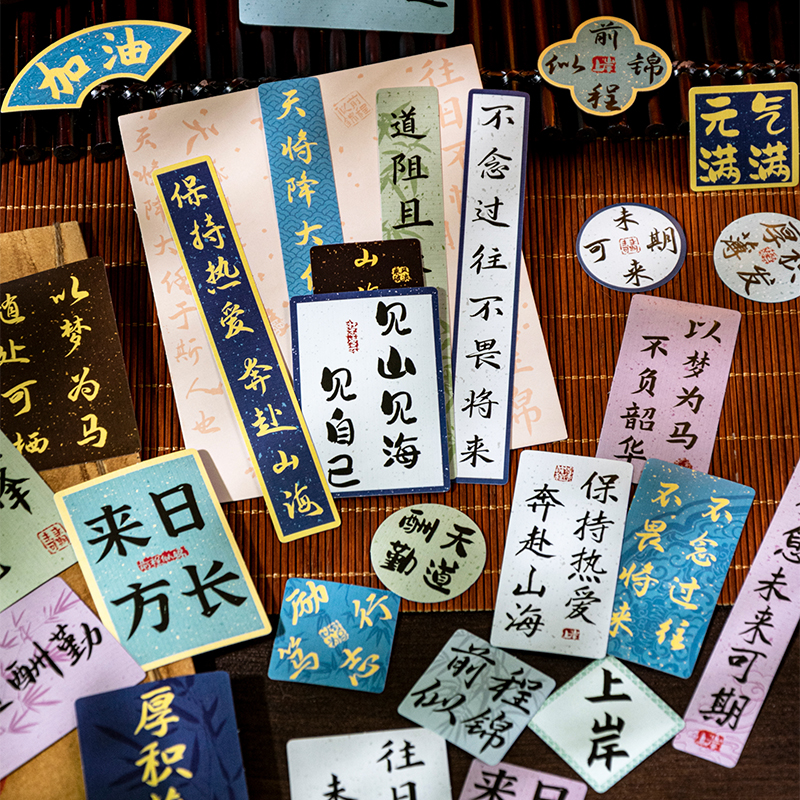 加油
前程
似锦
元气
满满
天将降大
道阻且
不念过往不畏将来
保持热爱奔赴山海
山海
见山见海
见自己
未来
可期
厚积
薄发
以梦为马
不负韶华
以梦为马
处可栖
将降大任于斯人也
往日不
锦
来日
方长
天道
酬勤
保持热爱
奔赴山海
不念过往
不畏将来
未来可期
励行
笃志
前程
似锦
上岸
酬勤
厚积
往日
未
来日